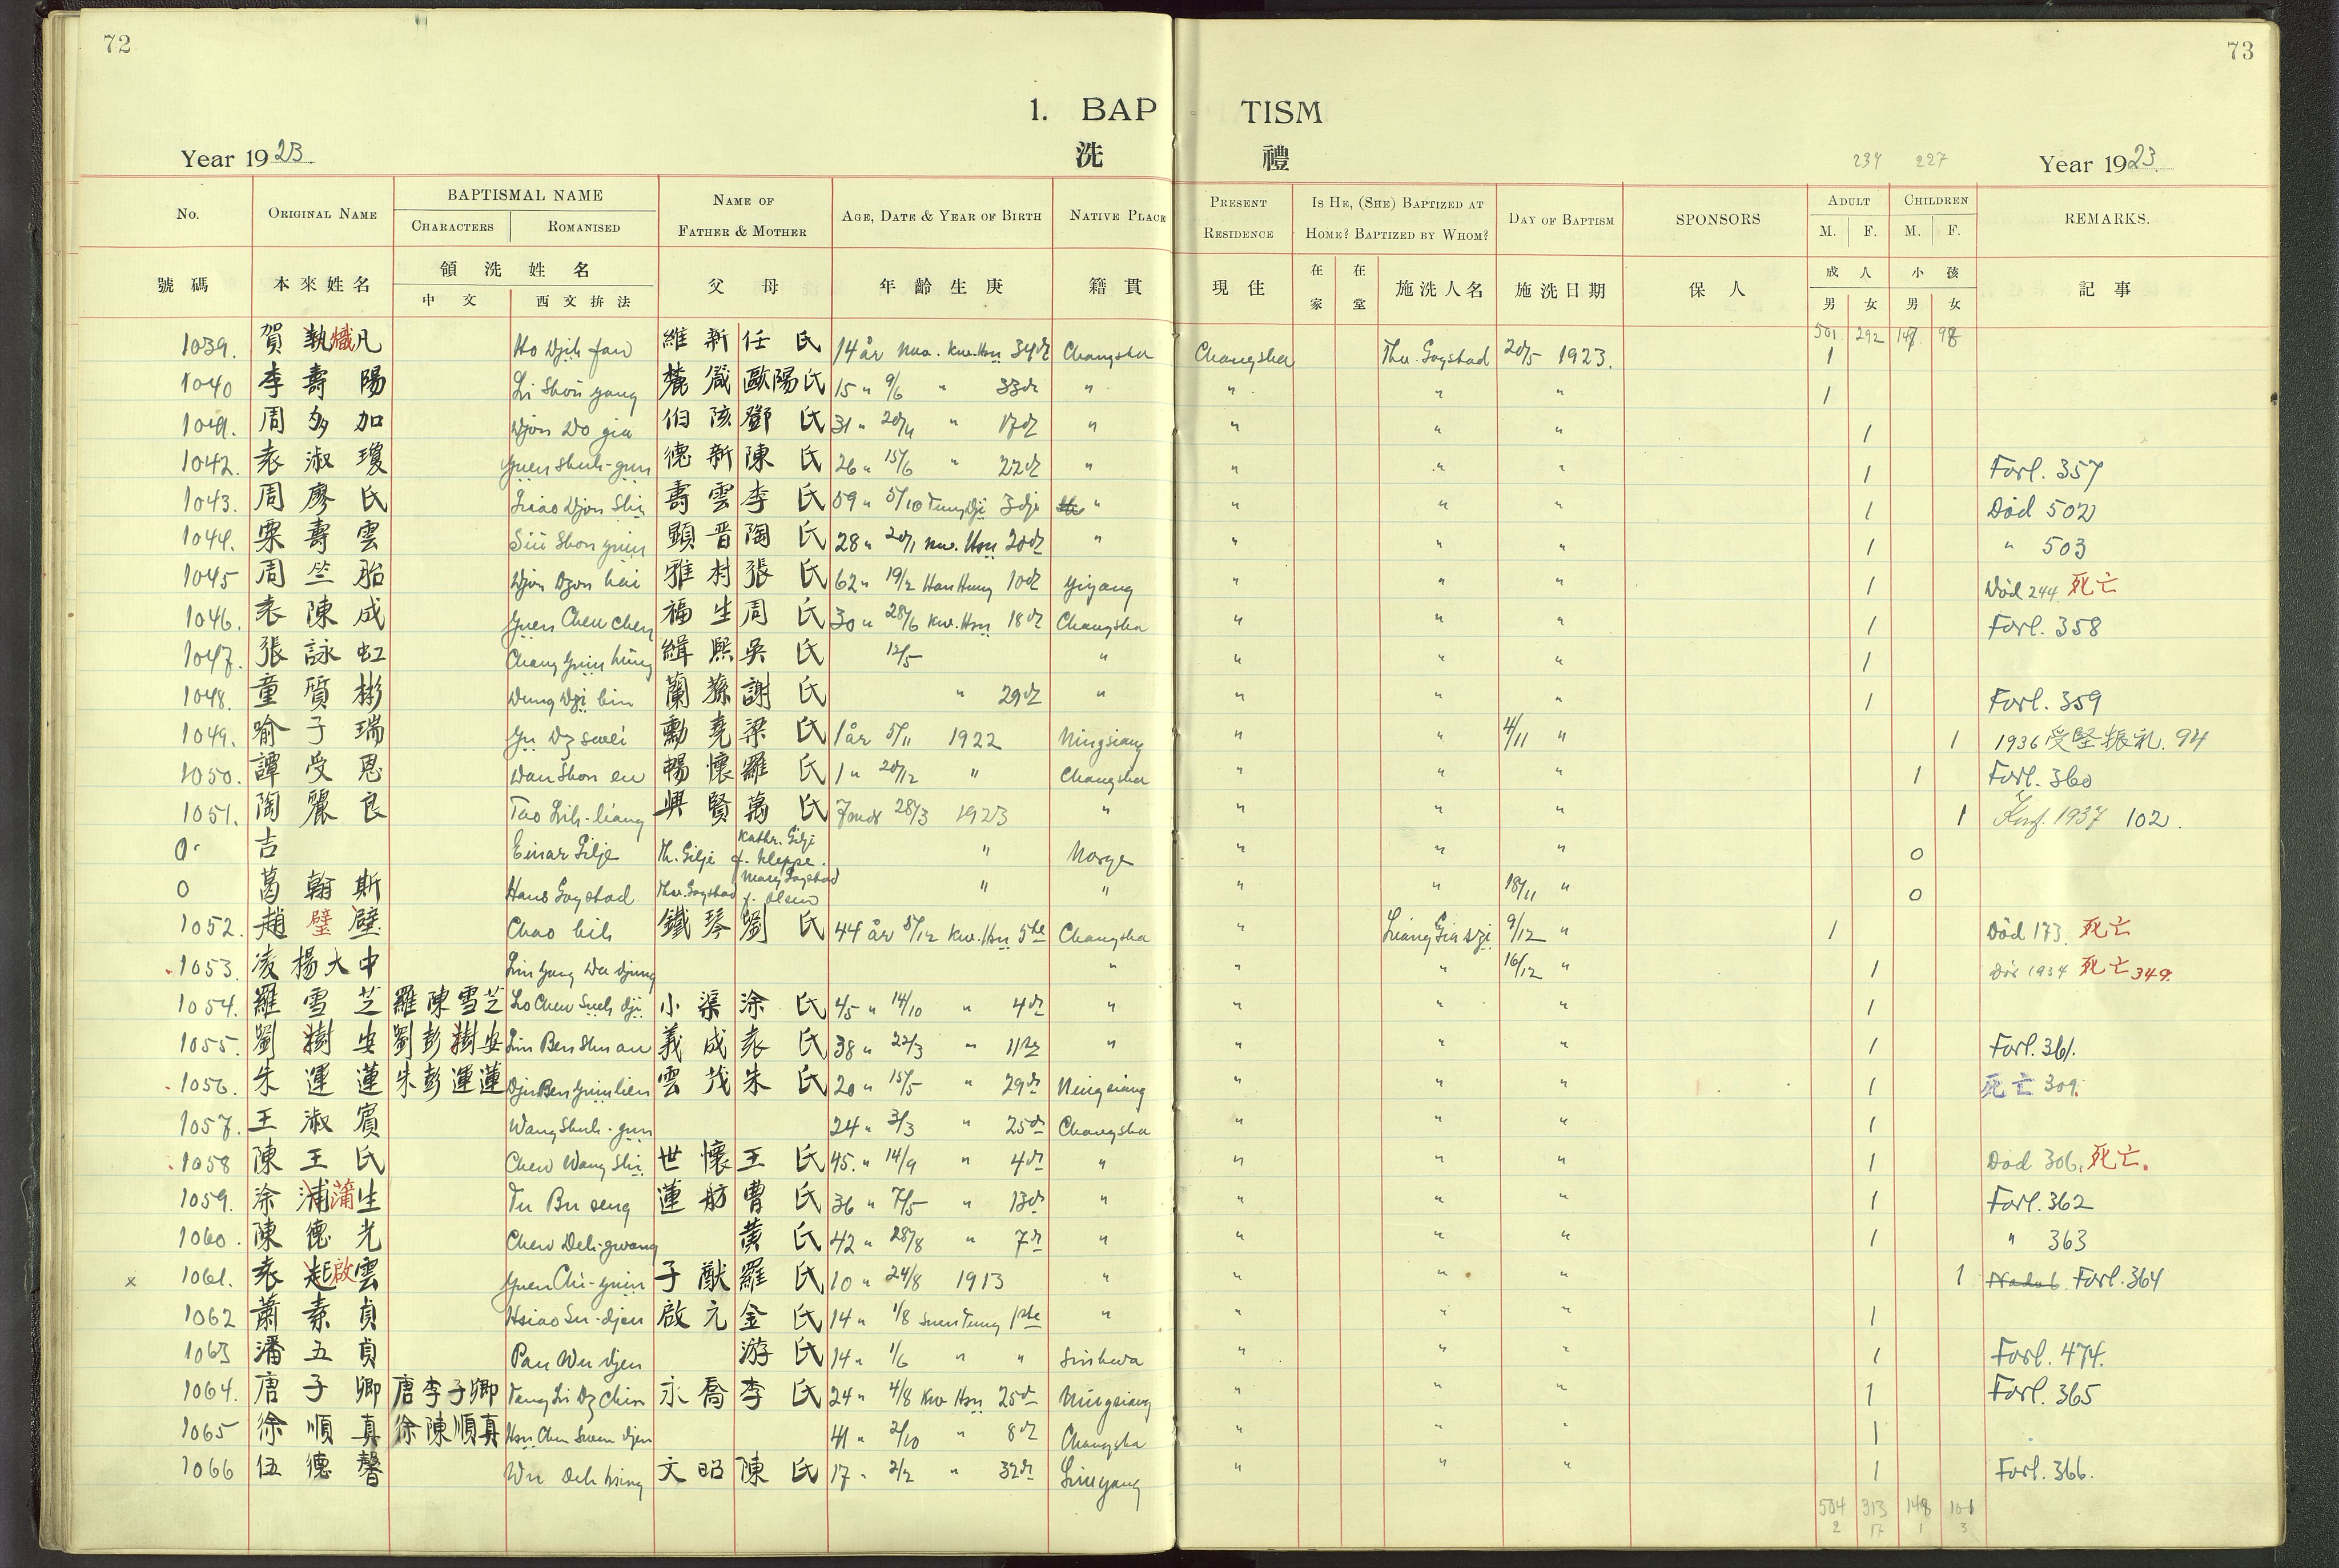 72
73
1. BAPTISM
洗 禮
Year 1923.
234 227
Year 1923.
No. ORIGINAL NAME BAPTISMAL NAME NAME OF FATHER & MOTHER AGE, DATE & YEAR OF BIRTH NATIVE PLACE PRESENT RESIDENCE IS HE, (SHE) BAPTIZED AT HOME? BAPTIZED BY WHOM? DAY OF BAPTISM SPONSORS ADULT CHILDREN REMARKS.
CHARACTERS ROMANISED M. F. M. F.
號碼 本來姓名 領洗姓名 父母 年齡生庚 籍貫 現住 在家 在堂 施洗人名 施洗日期 保人 成人 小孩 記事
中文 西文拚法 男 女 男 女
501 292 147 98
1039. 賀執熾凡 Ho Djih fan 維新 任氏 14 år Kw. Hsü 34 Changsha Changsha Thv. Gogstad 20/5 1923. 1
1040 李壽陽 Li Shou yang 歐陽氏 15 " 9/6 " 33 " " " " 1
1041. 周多加 Djou Do gia 伯陔 鄧氏 31 " 20/11 " 17 " " " " 1
1042. 袁淑瓊 Yuen Shuh-gün 德新 陳氏 26 " 15/6 " 22 " " " " 1 Forl. 357
1043. 周廖氏 Liao Djou Shi 壽雲 李氏 59 " 5/10 Tung Dji 3dje " " " " 1 Död 502
1044. 粟壽雲 Sü Shou yüin 顯晋 陶氏 28 " 20/1 Kw. Hsü 20 " " " " 1 " 503
1045 周竺胎 雅村 張氏 62 " 19/2 10 Yiyang " " " 1 Död 244. 死亡
1046. 袁陳成 Yuen Chen chen 福生 周氏 30 " 28/6 Kw. Hsü 18 Changsha " " " 1 Forl. 358
1047. 張詠虹 Chang Yüin hung 緝熙 吳氏 12/5 " " " " 1
1048. 童質彬 Dung Dji bin 蘭蓀 謝氏 " 29 " " " " 1 Forl. 359
1049. 喻子瑞 Yü Dz suei 勳堯 梁氏 1 år 5/11 1922 Ningsiang " " 4/11 " 1 1936 受堅振礼. 94
1050. 譚受恩 Dan Shou en 暢懷 羅氏 1 " 20/12 " Changsha " " " 1 Forl. 360
1051. 陶麗良 Tao Lih-liang 興賢 萬氏 7 mdr 28/3 1923 " " " " 1 Konf. 1937 102.
0 吉 Einar Gilje Th. Gilje Kathr. Gilje f. Kleppe. " Norge " " " 0
0 葛翰斯 Hans Gogstad Thv. Gogstad Mary Gogstad f. Olsen " " " " 18/11 " 0
1052. 趙璧 Chao bih 鐵琴 劉氏 44 år 5/12 Kw. Hsü 5te Changsha " Liang Gia dzi 9/12 " 1 Död 173. 死亡
1053. 凌楊大中 Lin Yang Da djung " " " 16/12 " 1 Död 1934 死亡 349.
1054. 羅雪芝 羅陳雪芝 Lo Chen Sueh dji 小渠 涂氏 45 " 14/10 " 4 " " " " 1
1055. 劉樹安 劉彭樹安 Liu Pen Shu an 義成 袁氏 38 " 22/3 " 11 " " " " 1 Forl. 361.
1056. 朱運蓮 朱彭運蓮 Dju Pen Yüin lien 雲茂 朱氏 20 " 15/5 " 29 Ningsiang " " " 1 死亡 309.
1057. 王淑賓 Wang Shuh-gün 24 " 3/3 " 25 Changsha " " " 1
1058 陳王氏 Chen Wang Shi 世懷 王氏 45. " 14/9 " 4 " " " " 1 Död 306. 死亡.
1059. 涂浦蒲生 Tu Bu seng 蓮舫 曹氏 36 " 7/5 " 13 " " " " 1 Forl. 362
1060. 陳德光 Chen Deh-gwang 黃氏 42 " 28/8 " 7 " " " " 1 " 363
x 1061. 袁起啟雲 Yuen Chi-yüin 子猷 羅氏 10 " 24/8 1913 " " " " 1 Forl. 364
1062 蕭素貞 Hsiao Su-djen 啟元 金氏 14 " 1/8 Suen Tung 1ste " " " " 1
1063 潘五貞 Pan Wu djen 游氏 14 " 1/6 " " Sinhwa " " " 1 Forl. 474.
1064. 唐子卿 唐李子卿 Tang Li Dz chin 永喬 李氏 24 " 4/8 Kw Hsü 25 Ningsiang " " " 1 Forl. 365
1065 徐順真 徐陳順真 Hsü Chen Suen djen 41 " 2/10 " 8 Changsha " " " 1
1066 伍德馨 Wu Deh hsing 文昭 陳氏 17 " 2/2 " 32 Liuyang " " " 1 Forl. 366.
504 313 148 101
2 17 1 3